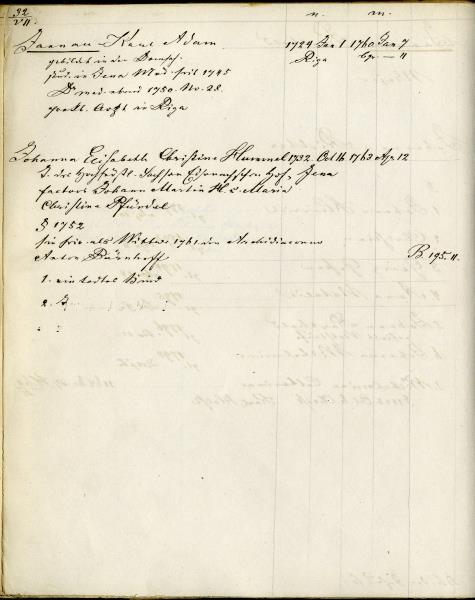 32
VII.
n. m.
Karl Adam 1724 Jan 1 1760 Jan 7
gebildet in der Domsch. Riga
stud. in Jena Med. seit 1745
Dr med. ebend 1750. No. 28.
prakt. Arzt in Riga
Johanna Elisabeth Christine Hummel 1732 Oct 16 1763 Apr 12
T. des Hochfürstl. Sachsen Eisenachschen Hof, Jena
factors Johann Martin H. u. Maria
Christine
§ 1752
sie als Wittwe 1761 den Archidiaconus
Anton Bärnhoff B. 195. II.
1. ein todtes Kind
2.